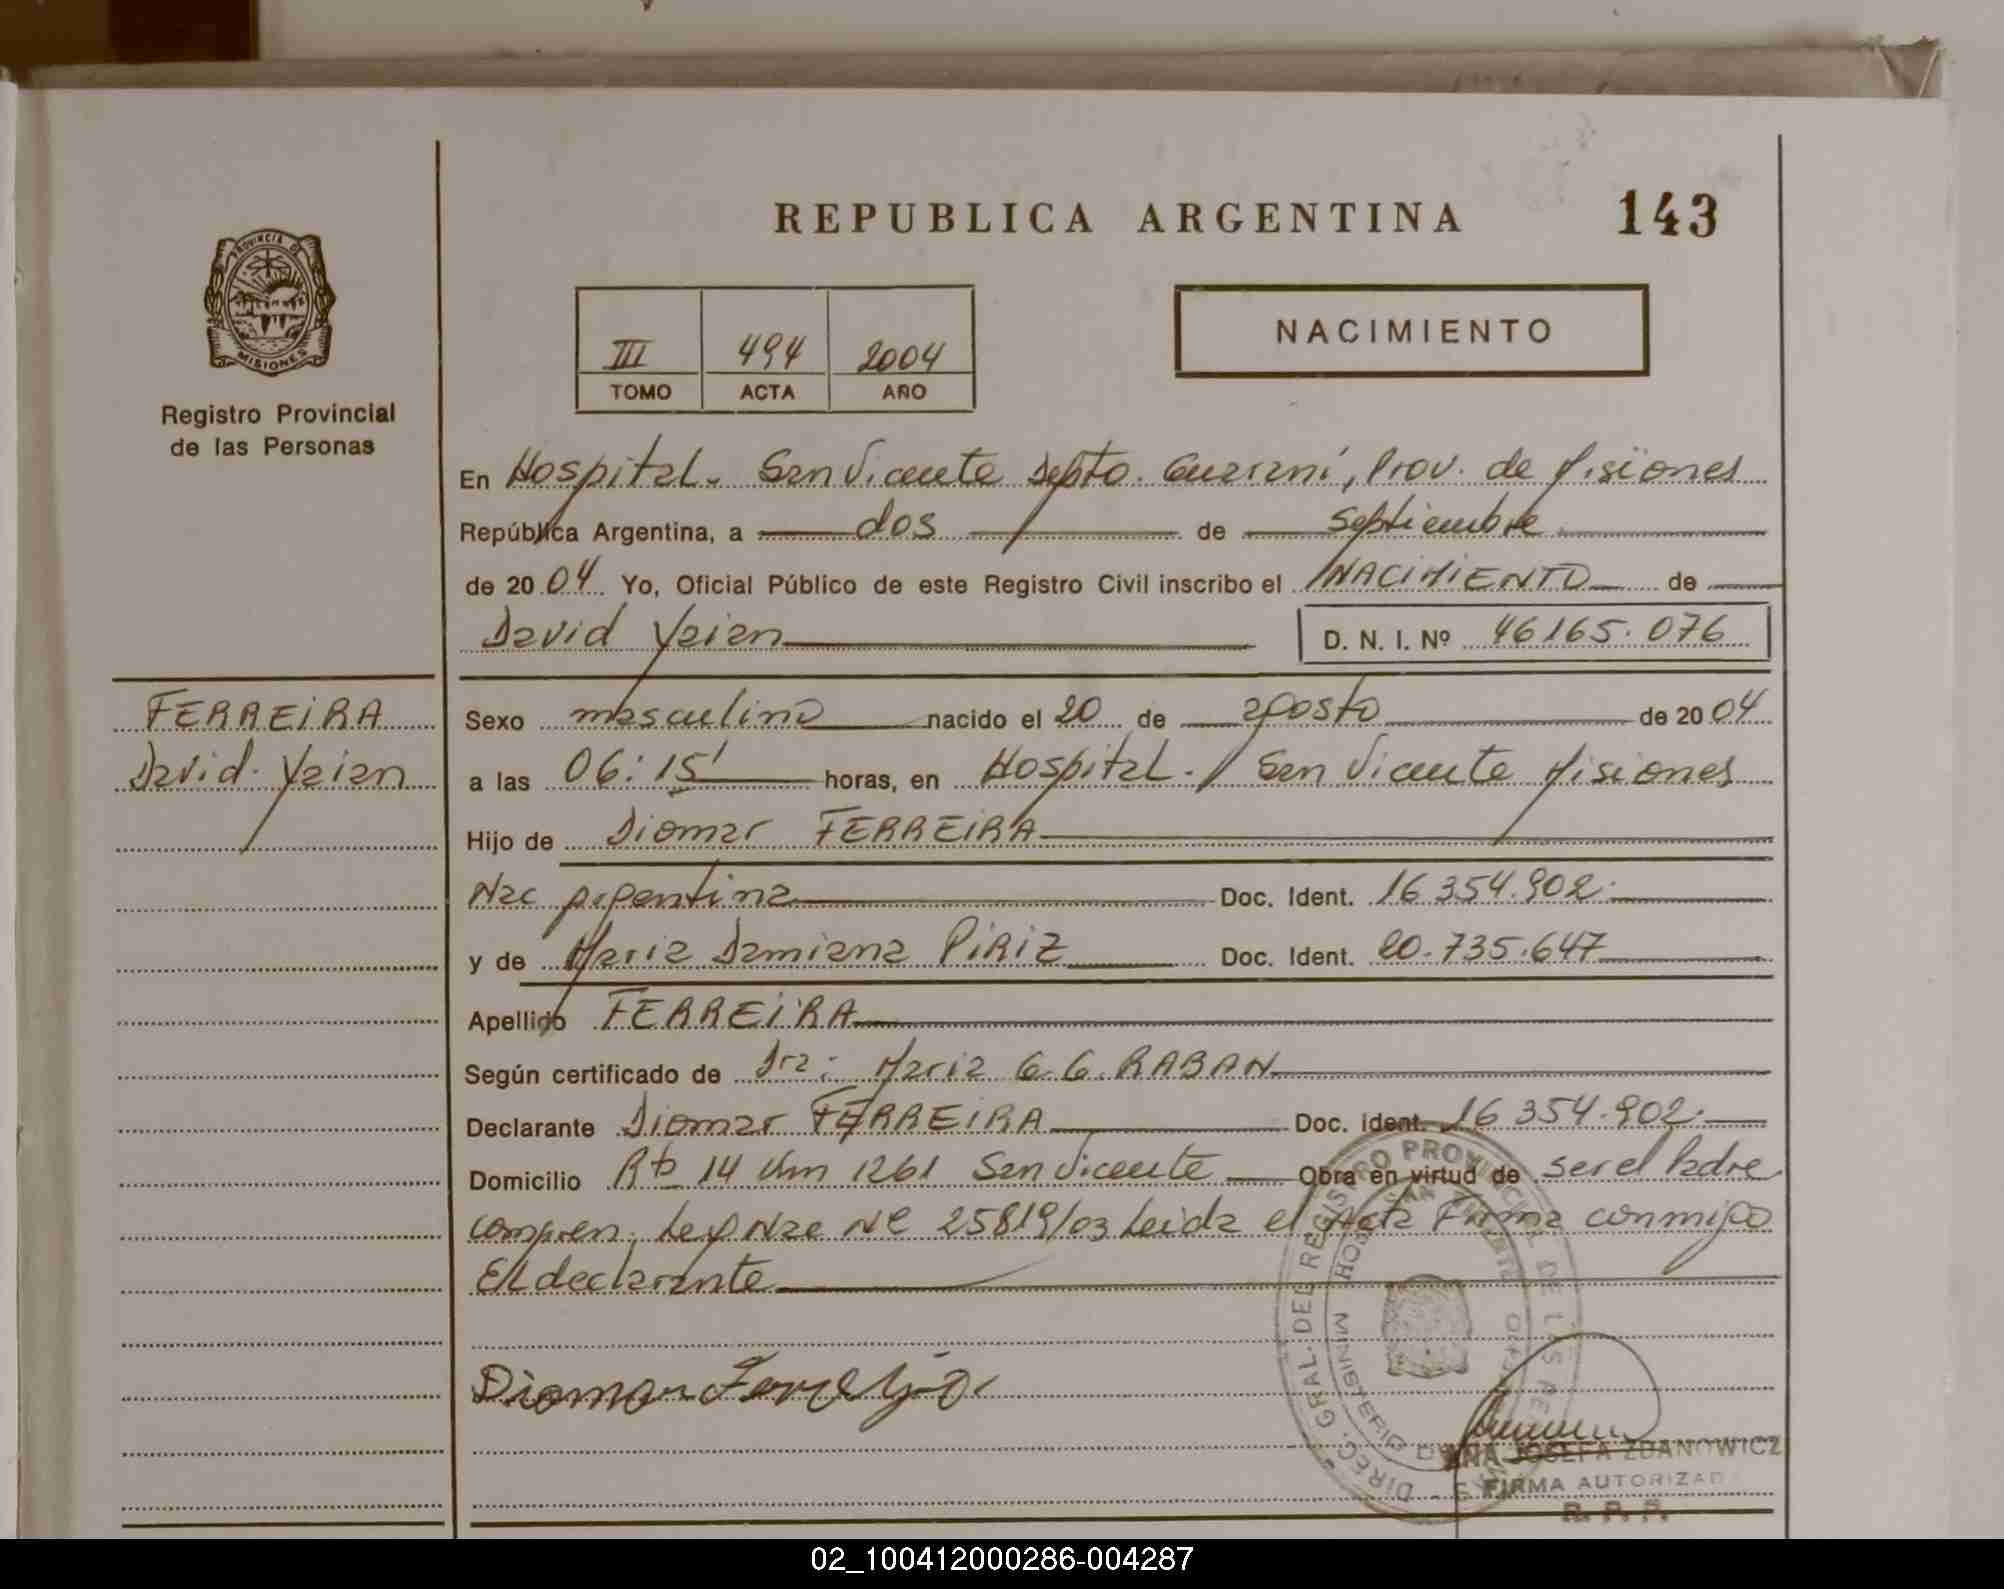 REPUBLICA ARGENTINA 143
PROVINCIA DE
MISIONES
Registro Provincial
de las Personas
III 494 2004
TOMO ACTA AÑO
NACIMIENTO
En Hospital. San Vicente Depto. Guaraní, Prov. de Misiones
República Argentina, a dos de Septiembre
de 2004 Yo, Oficial Público de este Registro Civil inscribo el NACIMIENTO de
David Yaian D. N. I. Nº 46165.076
FERREIRA
David Yaian
Sexo masculino nacido el 20 de agosto de 2004
a las 06:15' horas, en Hospital. San Vicente Misiones
Hijo de Diomar FERREIRA
Nac argentina Doc. Ident. 16.354.902
y de Maria Damiana PIRIZ Doc. Ident. 20.735.647
Apellido FERREIRA
Según certificado de Dra: Maria G.G. RABAN
Declarante Diomar FERREIRA Doc. Ident. 16 354.902
Domicilio Rta 14 Km 1261 San Vicente Obra en virtud de ser el Padre
compren. Ley Nac Nº 25819/03 Leida el Acta Firma conmigo
El declarante
DIREC. GRAL. DEL REGISTRO PROVINCIAL DE LAS
MINISTERIO HOSP SAN VICENTE
Diomar
ANA JOSEFA ZDANOWICZ
FIRMA AUTORIZADA
R. P. P.
02_100412000286-004287